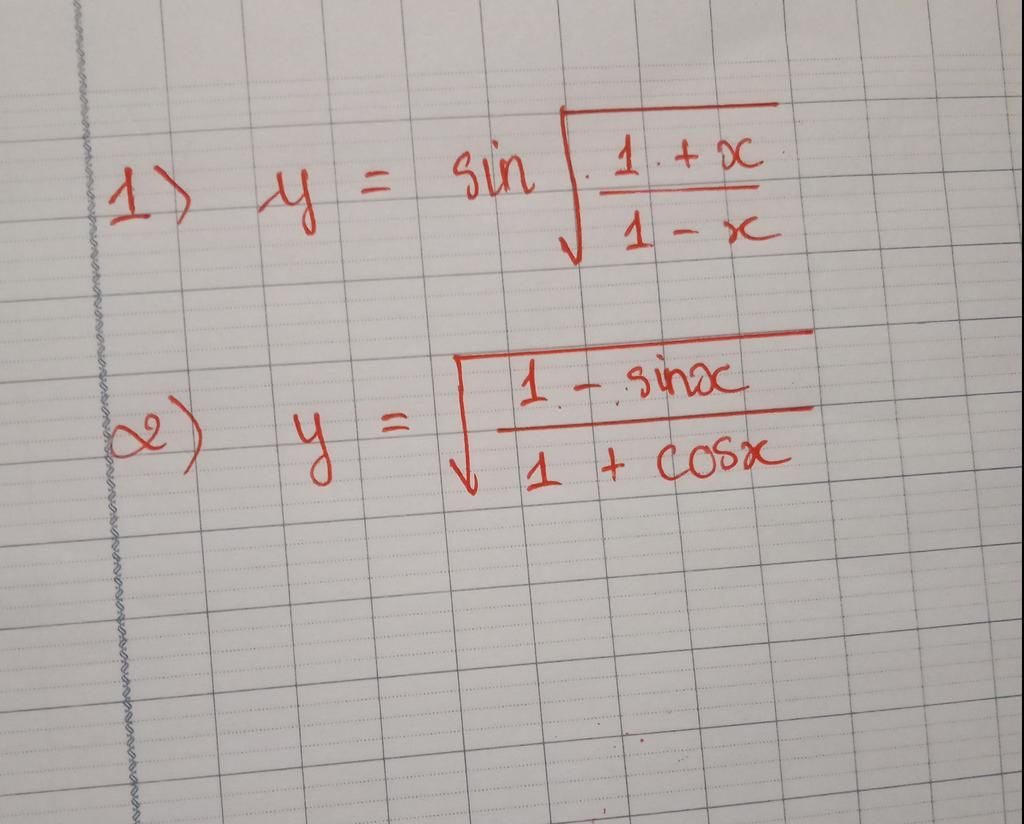 1) y = sin √((1 + x)/(1 - x))
2) y = √((1 - sinx)/(1 + cosx))